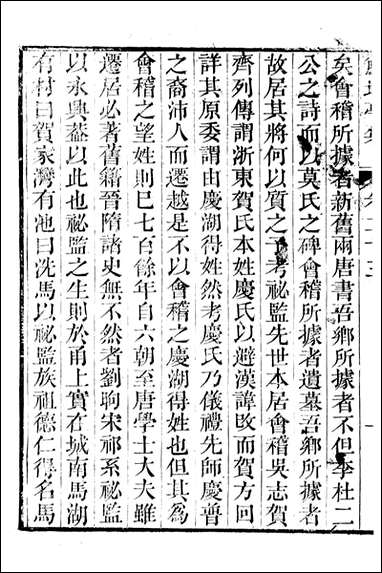 矣會稽所據者新舊兩唐書吾鄉所據者不但李杜二
公之詩而以莫氏之碑會稽所據者遺墓吾鄉所據者
故居其將何以質之予考祕監先世本居會稽吳志賀
齊列傳謂浙東賀氏本姓慶氏以避漢諱改而賀方回
詳其原委謂由慶湖得姓然考慶氏乃儀禮先師慶普
之裔沛人而遷越是不以會稽之慶湖得姓也但其為
會稽之望姓則巳七百餘年自六朝至唐學士大夫雖
遷居必著舊籍晉隋諸史無不然者劉昫宋祁系祕監
以永興葢以此也祕監之生則於甬上實在城南馬湖
有村曰賀家灣有池曰洗馬以祕監族祖德仁得名馬